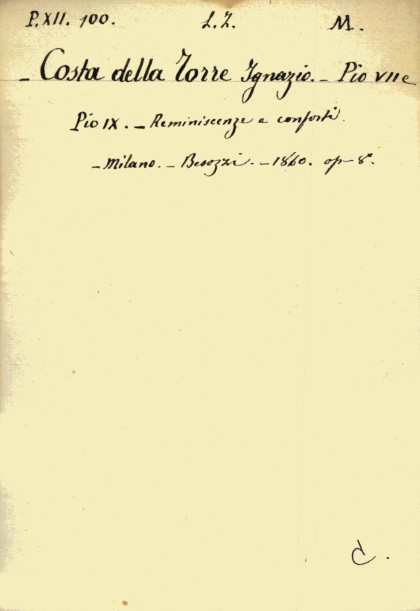 P.XII. 100. L.Z. M.
- Costa della Torre Ignazio. - Pio VII e
Pio IX. - Reminiscenze e conforti.
- Milano. - Besozzi. - 1860. op - 8°.
C.